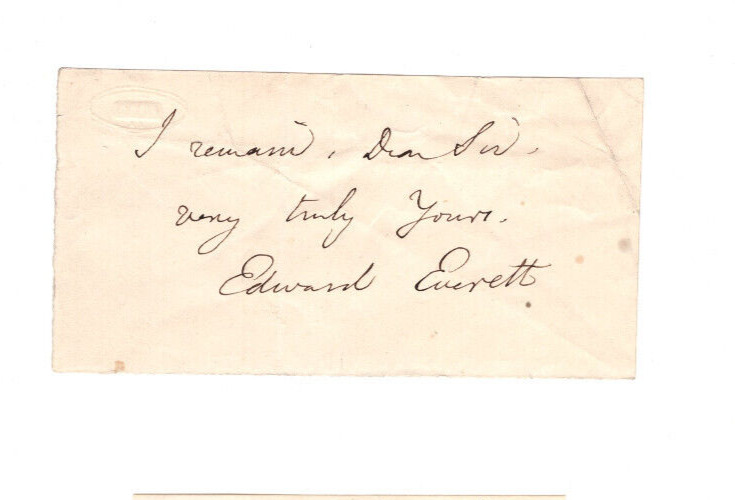 I remain, Dear Sir,
very truly Yours.
Edward Everett